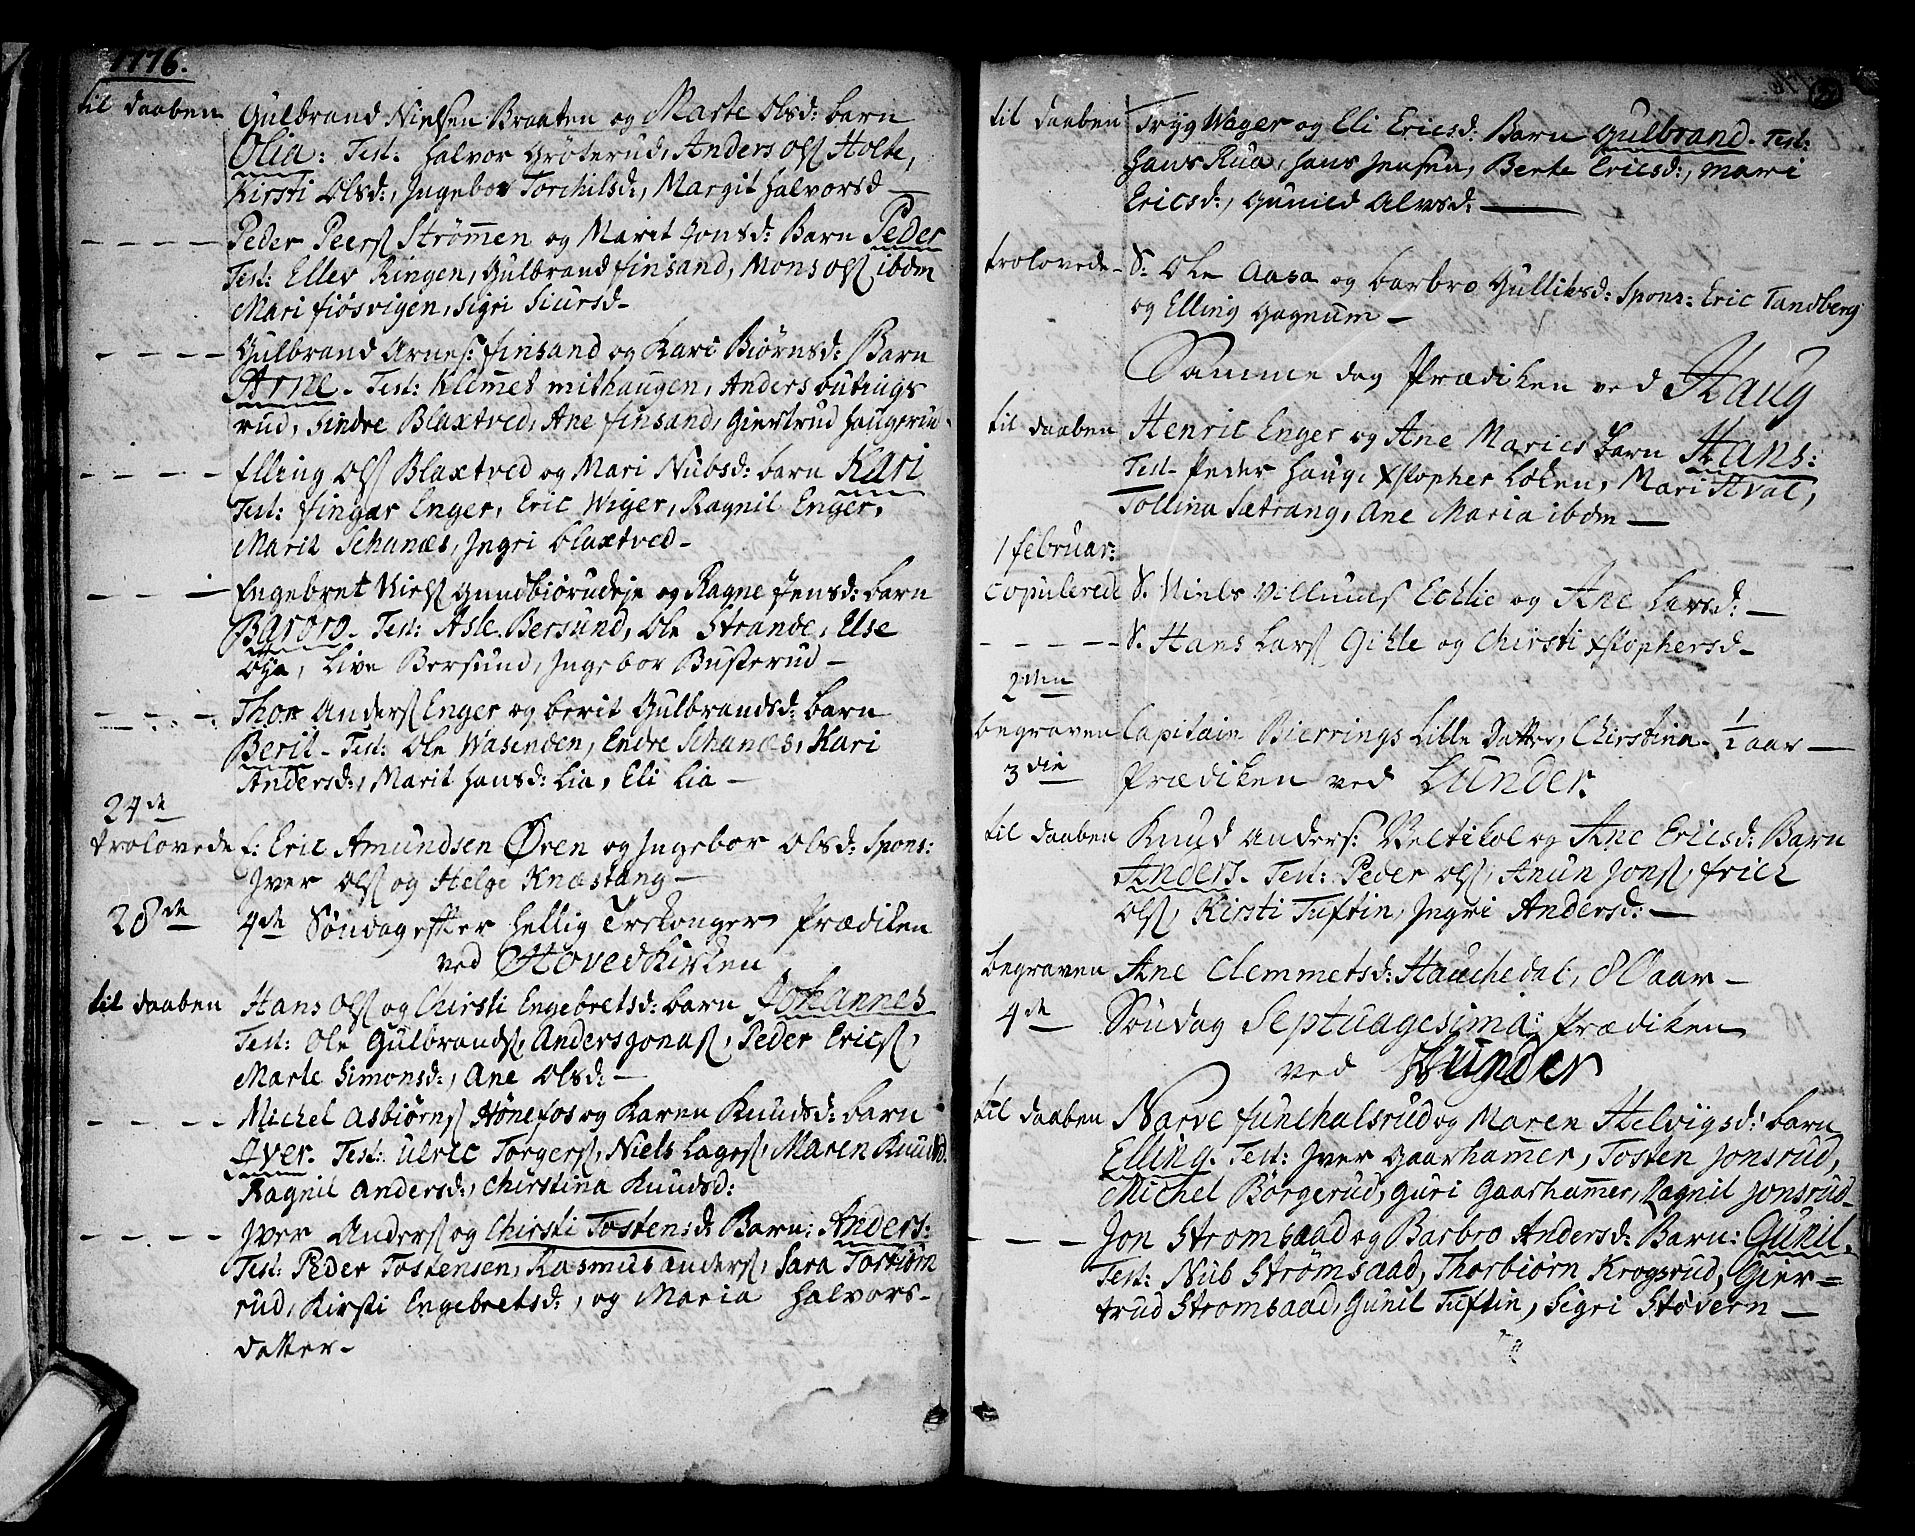 1776.
til daaben Gulbrand Nielsen Braaten og Marte Olsd: barn
Olia: Test: Halvor Gröterud, Anders Ols Holte,
Kirsti Olsd:, Ingebor Torchilsd:, Margit Halvorsd —
- - - - Peder Peers Strømen og Marit Jonsd: Barn Peder
Test: Ellev Ringen, Gulbrand finsand, Mons Ols ibdm
Mari fiösvigen, Sigri Siursd-
- - - - Gulbrand Arnes: finsand og Kari Biørnsd: Barn
Arne. Test: Klemet mithaugen, Anders butings
rud, Sindre Blaxtved, Ane finsand, Giertrud Haugerud.
- - - - Elling Ols Blaxtved og Mari Nubsd: barn Kari
Test: fingar Enger, Eric Wiger, Ragnil Enger,
Marit Schanæs, Ingri blaxtved-
- - - - Engebret Niels Gundbiörudeje og Ragne Jensd: barn
Barbro. Test: Asle Bersund, Ole Strande, Else
Oya, Live Bersund, Ingebor Busterud —
- - - - Thor Anders Enger og berit Gulbrandsd: barn
Berit. Test: Ole Wasenden, Endre Schanæs, Kari
Andersd:, Marit Hansd: Lia, Eli Lia —
24de
trolovede f: Eric Amundsen Øren og Ingebor Olsd: Spons:
Iver Ols og Helge Knæstang —
28de 4de Søndag efter Hellig Trekonger Prædiken
ved Hovedkirken
til daaben Hans Ols og Chirsti Engebretsd: barn Johannes
Test: Ole Gulbrands, Anders Jonas, Peder Erics,
Marte Simonsd:, Ane Olsd: —
- - - - Michel Asbiørns Hönefos og Karen Knudsd: barn
Iver. Test: Ulric Torgers, Niels Lages, Maren Knudsd.
Ragnil Andersd:, Christina Knudsd:
- - - - Iver Anders og Chirsti Tostensd: Barn: Anders:
Test: Peder Tostensen, Rasmus Anders, Sara Torbiörn
rud, Kirsti Engebretsd:, og Maria Halvors-
datter-
til daaben Tryg Wager og Eli Ericsd: Barn Gulbrand. Test:
Hans Rua, Hans Jensen, Berte Ericsd:, Mari
Ericsd:, Gunild Alvsd: —
trolovede- S: Ole Aasa og barbro Gulliksd: Spons: Eric Tandberg
og Elling Gagnum —
Samme dag Prædiken ved Haug
til daaben Henric Enger og Ane Maries barn Hans:
Test- Peder Haug, Xstopher Loken, Mari Hval,
Tollina Sætrang, Ane Maria ibdm —
1 februar:
Copulerede S. Niels Villums Ecklie og Ane Larsd: —
- - - - S. Hans Lars Gihle og Chirsti Xstophersd-
2den
begraven Capitain Bierrings Lille Datter, Chirstina- 1/2 aar —
3die Prædiken ved Lunder.
til daaben Knud Anders: Veltikol og Ane Ericsd: Barn
Anders. Test: Peder Ols, Anun Jons, frich
Ols, Kirsti Tuftin, Ingri Andersd: —
begraven Ane Clemmetsd: Hauchedal, 80 aar —
4de Søndag Septuagesima: Prædiken
ved Lunder
til daaben Narve funchalsrud og Maren Helvigsd: barn
Elling. Test: Iver Gaarhamer, Tosten Jonsrud,
Michel Borgerud, Guri Gaarhamer, Ragnil Jonsrud-
- - - Jon Stromsaad og Barbro Andersd: Barn: Gunil.
Test: Nub Strømsaad, Thorbiørn Krogsrud, Gier=
trud Stromsaad, Gunil Tuftin, Sigri Støvern —